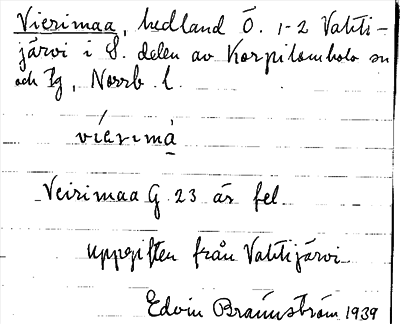 Vierimaa, hedland Ö. 1-2 Vahti-
järvi i S. delen av Korpilombolo sn
och tg, Norrb. l.
víerımà̱
Veirimaa G 23 är fel.
uppgiften från Vahtijärvi
Edvin Brännström 1939